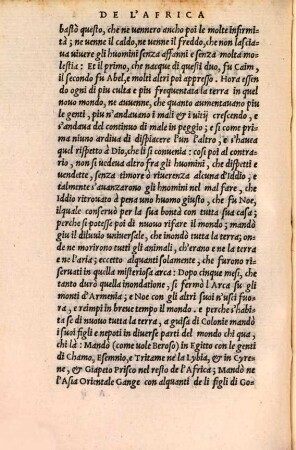 DE L'AFRICA
bastò questo, che ne vennero ancho poi le molte infirmi-
tà; ne venne il caldo, ne venne il freddo, che non lascia-
uua uiuere gli huomini senza affanni e senza molta mo-
lestia: Et il primo, che nacque di questi duo, fu Caim,
il secondo fu Abel, e molti altri poi appresso. Hora essen-
do ogni dì piu culta e piu frequentata la terra in quel
nouo mondo, ne auuenne, che quanto aumentauano piu
le genti, piu n'andauano i mali & i uitij crescendo, e
s'andaua del continuo di male in peggio; e si come pri-
ma niuno ardiua di dispiacere l'un l'altro, e s'haueua
quel rispetto à Dio, che si conuenia: cosi poi al contra-
rio, non si uedeua altro fra gli huomini, che dispetti e
uendette, senza timore ò riuerenza alcuna d'Iddio, e
talmente s'auanzarono gli huomini nel mal fare, che
Iddio ritrouato à pena uno huomo giusto, che fu Noe,
il quale conseruò per la sua bontà con tutta sua casa;
perche si potesse poi di nuouo rifare il mondo; mandò
giu il diluuio uniuersale, che inondò tutta la terra; on-
de ne morirono tutti gli animali, ch'erano e ne la terra
e ne l'aria; eccetto alquanti solamente, che furono riser-
uati in quella misteriosa arca: Dopo cinque mesi, che
tanto durò quella inondatione, si fermò l Arca su gli
monti d'Armenia; e Noe con gli altri suoi n'uscì fuo-
ra, e riempì in breue tempo il mondo. e perche s'habita-
se di nuouo tutta la terra, a guisa di Colonie mandò
i suoi figli e nepoti in diuerse parti del mondo chi qua,
chi là: Mandò (come uole Beroso) in Egitto con le genti
di Chamo, Esennio, e Tritame ne la Lybia, & in Cyre-
ne, & Giapeto Prisco nel resto de l'Africa; Mandò ne
l'Asia Orientale Gange con alquanti de li figli di Go-